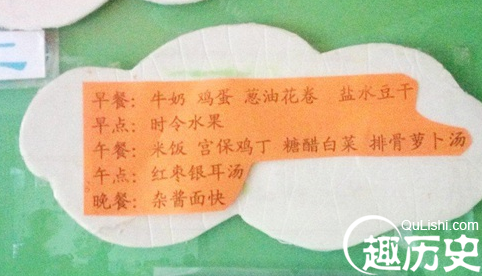 二
早餐：牛奶 鸡蛋 葱油花卷 盐水豆干
早点：时令水果
午餐：米饭 宫保鸡丁 糖醋白菜 排骨萝卜汤
午点：红枣银耳汤
晚餐：杂酱面快
QuLishi.com
趣历史